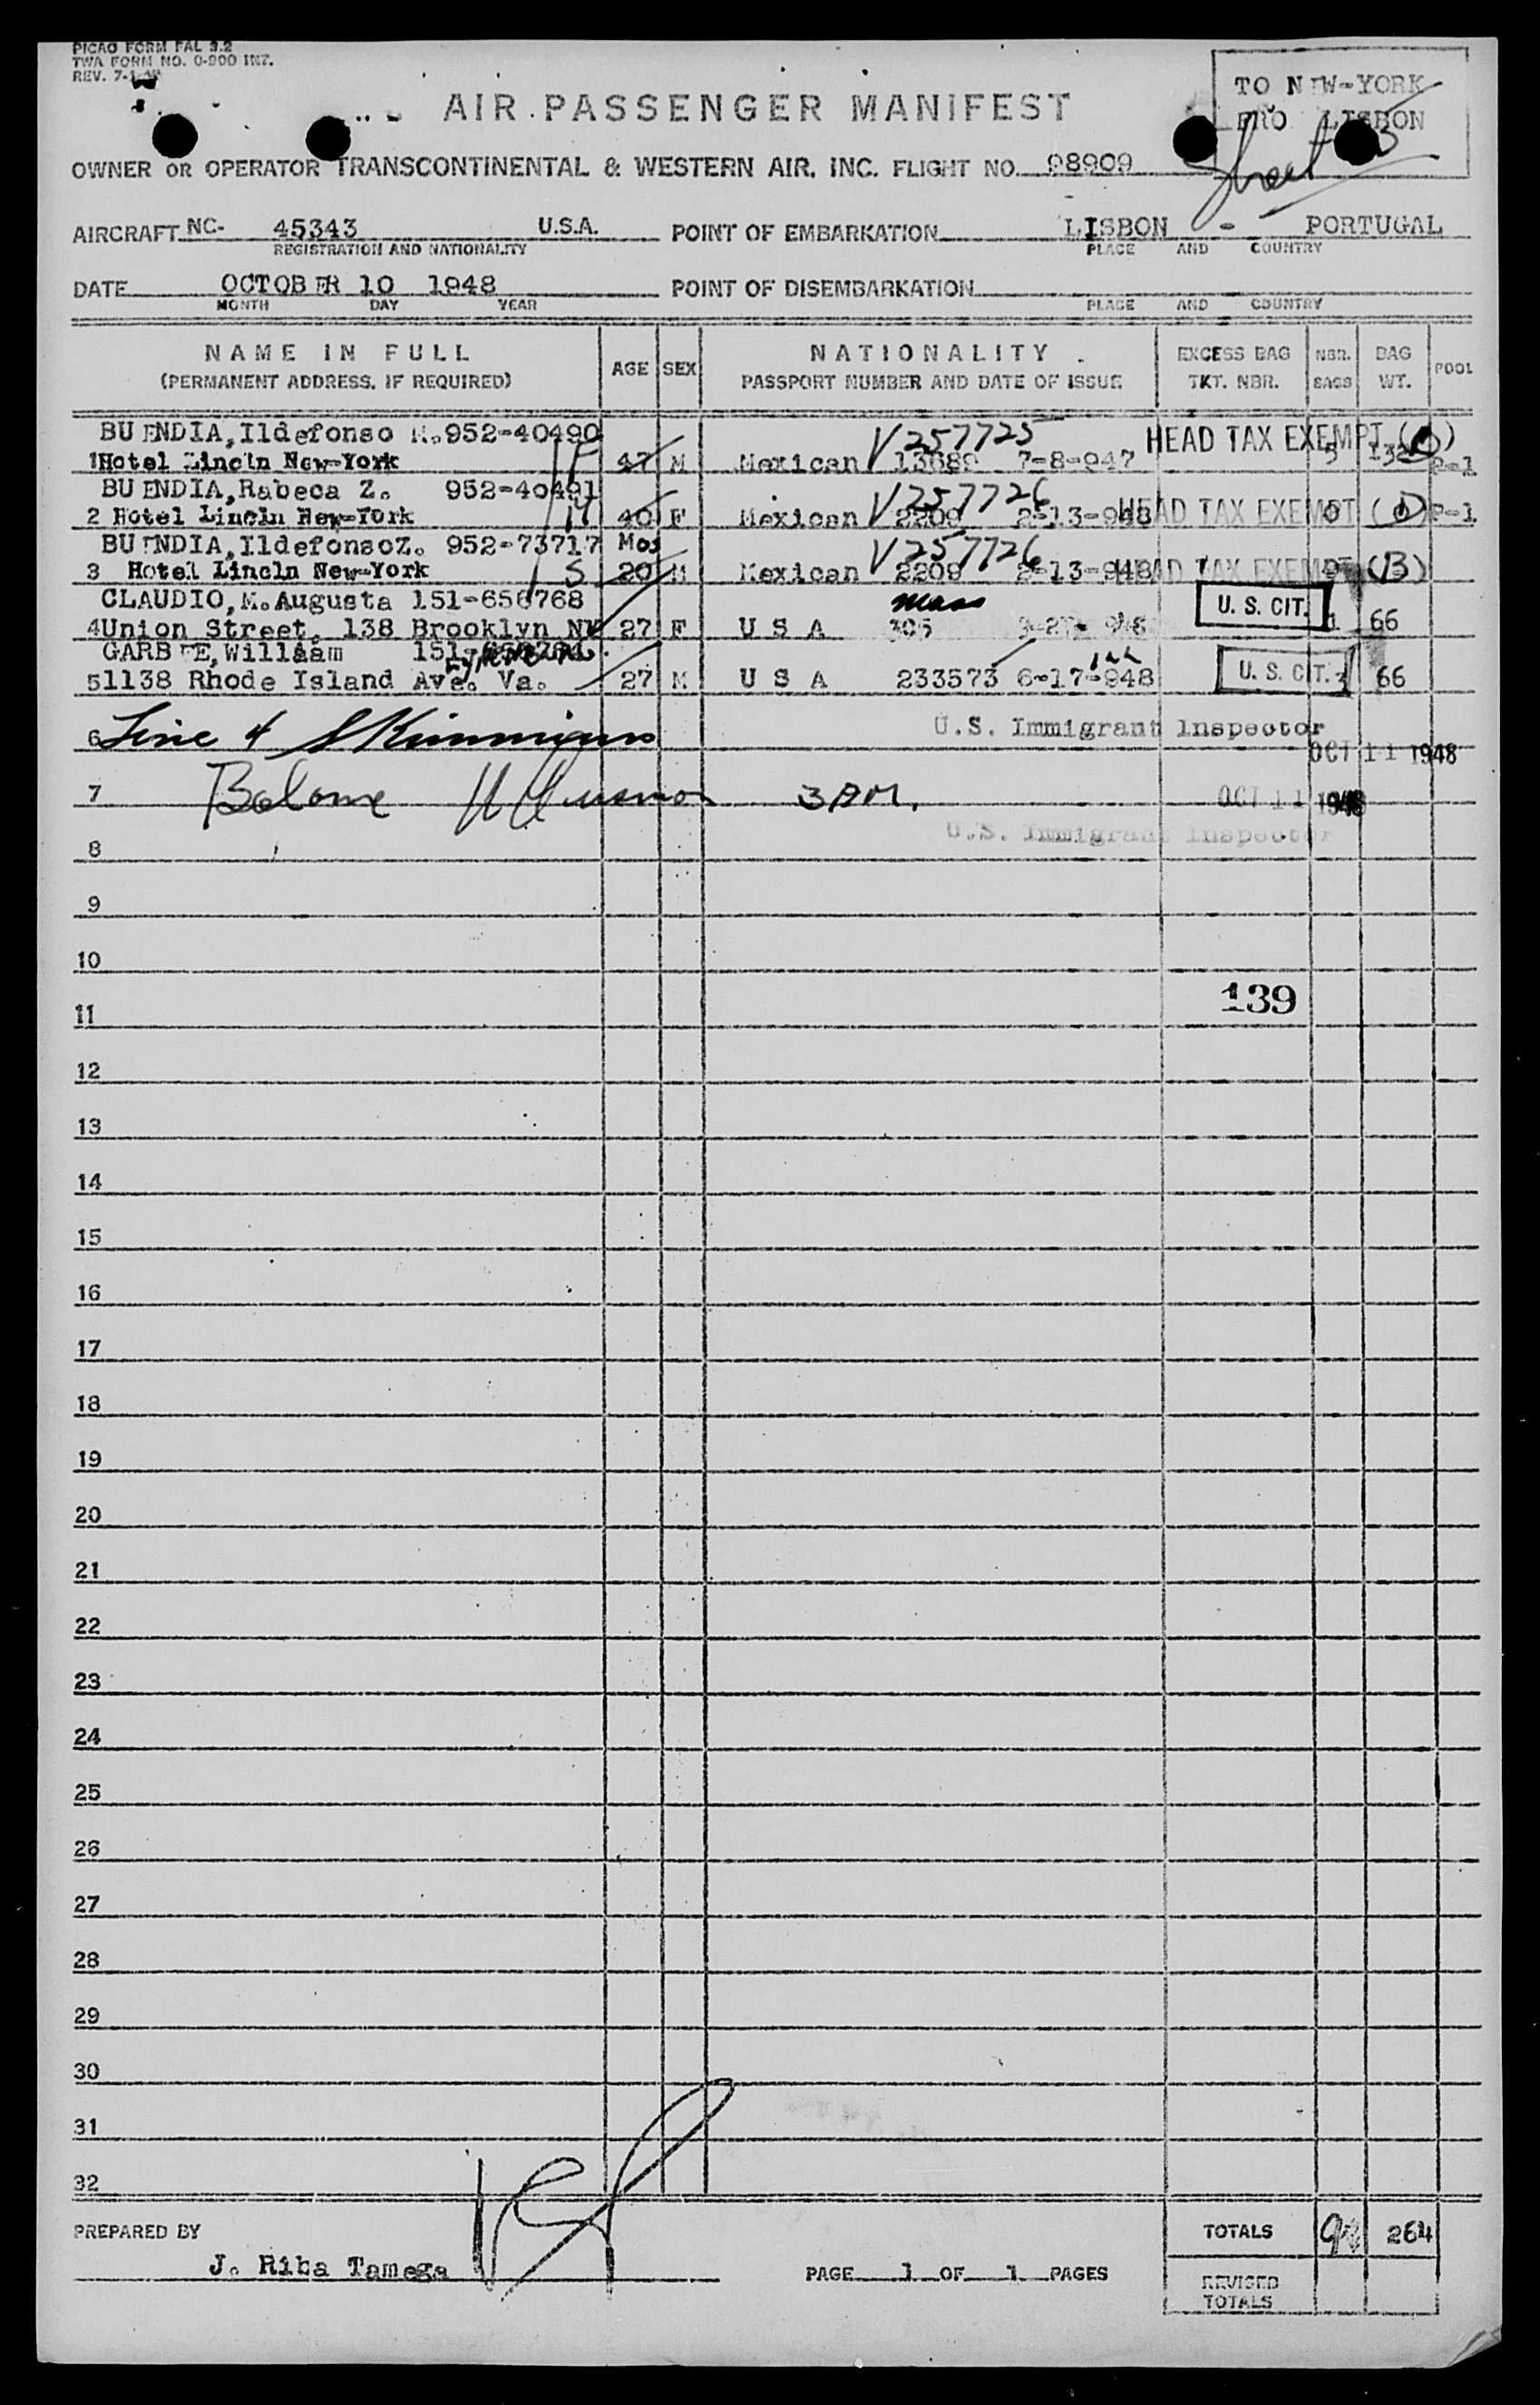 PICAO FORM FAL 3.2
TWA FORM NO. 0-900 INT.
REV.
AIR PASSENGER MANIFEST
TO NEW-YORK
FRO LISBON
Sheet
OWNER OR OPERATOR TRANSCONTINENTAL & WESTERN AIR, INC. FLIGHT NO. 98909
AIRCRAFT NC- 45343 U.S.A. POINT OF EMBARKATION LISBON - PORTUGAL
REGISTRATION AND NATIONALITY PLACE AND COUNTRY
DATE OCTOBER 10 1948 POINT OF DISEMBARKATION
MONTH DAY YEAR PLACE AND COUNTRY
NAME IN FULL AGE SEX NATIONALITY EXCESS BAG NBR. BAG POOL
(PERMANENT ADDRESS, IF REQUIRED) PASSPORT NUMBER AND DATE OF ISSUE TKT. NBR. BAGS WT.
BUENDIA,Ildefonso M.952-40490 V257725 HEAD TAX EXEMPT
1Hotel Lincln New-York 47 M Mexican 13689 7-8-947 5 132 P-1
BUENDIA,Rabeca Z. 952-40491 V257726 HEAD TAX EXEMPT
2 Hotel Lincln New-York 40 F Mexican 2209 2-13-948 0 P-1
BUENDIA,IldefonsoZ. 952-73717 Mos V257726
3 Hotel Lincln New-York 20 M Mexican 2209 2-13-948 HEAD TAX EXEMPT (B)
CLAUDIO,M.Augusta 151-656768 U. S. CIT.
4Union Street, 138 Brooklyn NY 27 F U S A 305 1 66
GARBEE,Williaam
51138 Rhode Island Ave. Va. 27 M U S A 233573 6-17-948 U. S. CIT. 3 66
6 Line 4 U.S. Immigrant Inspector
OCT 11 1948
7 3 P.M. OCT 11 1948
U.S. Immigrant Inspector
8
9
10
139
11
12
13
14
15
16
17
18
19
20
21
22
23
24
25
26
27
28
29
30
31
32
PREPARED BY TOTALS 264
J. Riba Tamega PAGE 1 OF 1 PAGES
REVISED
TOTALS